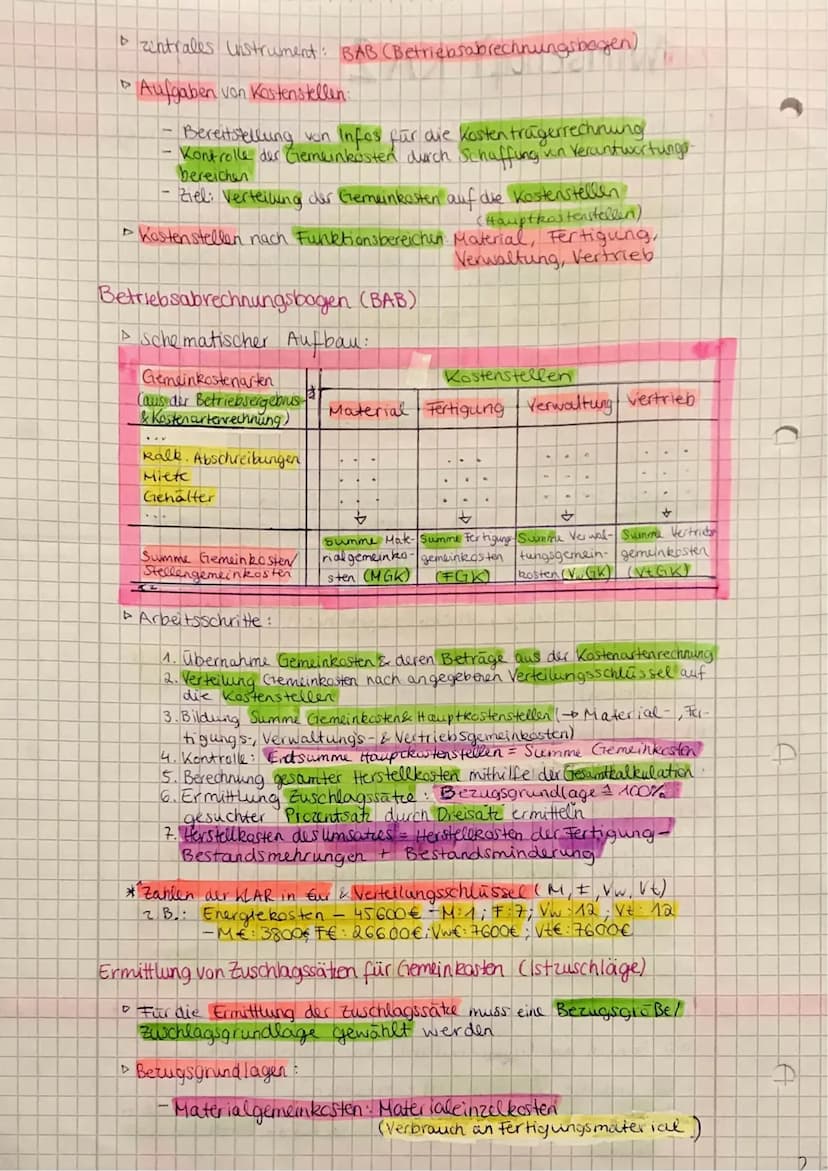 ▷ zentrales Instrument: BAB (Betriebsabrechnungsbogen)
▷ Aufgaben von Kostenstellen:
- Bereitstellung von Infos für die Kostenträgerrechnung
- Kontrolle der Gemeinkosten durch Schaffung von Verantwortungs-
bereichen
- Ziel: Verteilung der Gemeinkosten auf die Kostenstellen
(Hauptkostenstellen)
▷ Kostenstellen nach Funktionsbereichen: Material, Fertigung,
Verwaltung, Vertrieb
Betriebsabrechnungsbogen (BAB)
▷ schematischer Aufbau:
Gemeinkostenarten
(aus der Betriebsergebnis-
& Kostenartenrechnung)
*
Kostenstellen
Material Fertigung Verwaltung Vertrieb
...
Kalk. Abschreibungen
Miete
Gehälter
...
Summe Gemeinkosten/
Stellengemeinkosten
Summe Mate-
rialgemeinko-
sten (MGK)
Summe Fertigungs-
gemeinkosten
(FGK)
Summe Verwal-
tungsgemein-
kosten (VwGK)
Summe Vertriebs
gemeinkosten
(VtGK)
▷ Arbeitsschritte:
1. Übernahme Gemeinkosten & deren Beträge aus der Kostenartenrechnung
2. Verteilung Gemeinkosten nach angegebenen Verteilungsschlüssel auf
die Kostenstellen
3. Bildung Summe Gemeinkosten & Hauptkostenstellen (→ Material-, Fer-
tigungs-, Verwaltungs- & Vertriebsgemeinkosten)
4. Kontrolle: Endsumme Hauptkostenstellen = Summe Gemeinkosten
5. Berechnung gesamter Herstellkosten mithilfe der Gesamtkalkulation
6. Ermittlung Zuschlagssätze: Bezugsgrundlage ≙ 100%
gesuchter Prozentsatz durch Dreisatz ermitteln
7. Herstellkosten des Umsatzes = Herstellkosten der Fertigung -
Bestandsmehrungen + Bestandsminderung
* Zahlen der KLAR in Eur & Verteilungsschlüssel (M, F, Vw, Vt)
z.B.: Energiekosten - 45600€ - M: 1; F: 7; Vw: 12; Vt: 12
- M€: 3800€ F€: 26600€; Vw€: 7600€; Vt€: 7600€
Ermittlung von Zuschlagssätzen für Gemeinkosten (Istzuschläge)
▷ Für die Ermittlung der Zuschlagssätze muss eine Bezugsgröße/
Zuschlagsgrundlage gewählt werden
▷ Bezugsgrundlagen:
- Materialgemeinkosten: Materialeinzelkosten
(Verbrauch an Fertigungsmaterial)